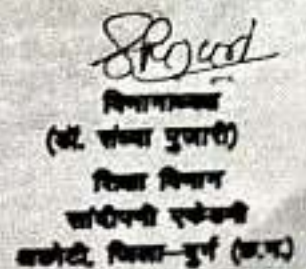 विभागाध्यक्ष
(डॉ. संध्या पुजारी)
शिक्षा विभाग
सांदीपनी एकेडमी
अछोटी, जिला-दुर्ग (छ.ग.)